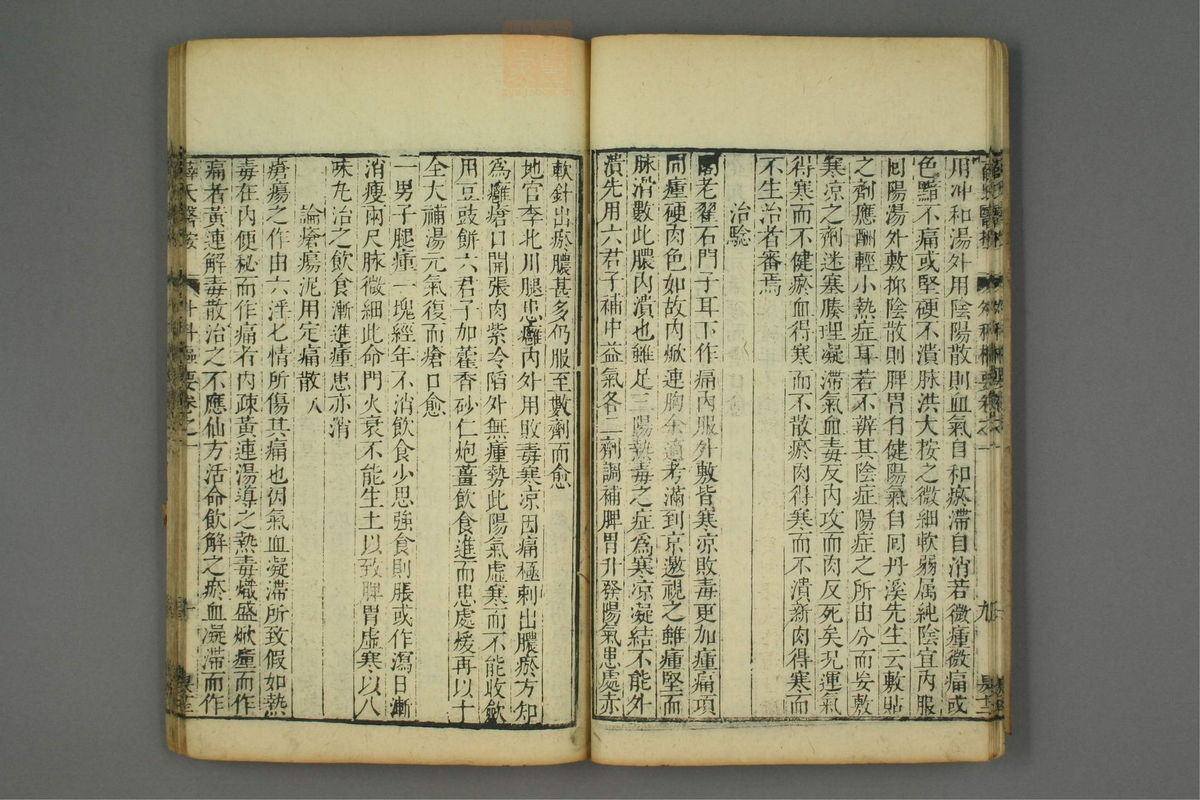 用冲和湯外用陰陽散則血氣自和瘀滯自消若微腫微痛或
色黯不痛或堅硬不潰脉洪大按之微細軟弱属純陰宜内服
囬陽湯外敷抑陰散則脾胃自健陽氣自囬丹溪先生云敷貼
之劑應酬輕小熱症耳若不辨其陰症陽症之所由分而妄敷
寒凉之劑迷塞腠理凝滯氣血毒反内攻而肉反死矣况運氣
得寒而不健瘀血得寒而不散瘀肉得寒而不潰新肉得寒而
不生治者審焉
治驗
閣老翟石門子耳下作痛内服外敷皆寒凉敗毒更加腫痛項
間腫硬肉色如故内焮連胸余適考滿到京邀視之雖腫堅而
脉滑數此膿内潰也雖足三陽熱毒之症爲寒凉凝結不能外
潰先用六君子補中益氣各二劑調補脾胃升發陽氣患處赤
軟針出瘀膿甚多仍服至數劑而愈
地官李北川腿患癰内外用敗毒寒凉因痛極刺出膿瘀方知
爲癰瘡口開張肉紫冷陷外無腫勢此陽氣虛寒而不能收斂
用豆豉餅六君子加藿香砂仁炮薑飲食進而患處煖再以十
全大補湯元氣復而瘡口愈
一男子腿腫一塊經年不消飲食少思強食則脹或作瀉日漸
消瘦兩尺脉微細此命門火衰不能生土以致脾胃虛寒以八
味丸治之飲食漸進腫患亦消
論瘡瘍泥用定痛散八
瘡瘍之作由六淫七情所傷其痛也因氣血凝滯所致假如熱
毒在内便秘而作痛者内疎黃連湯導之熱毒熾盛焮腫而作
痛者黃連解毒散治之不應仙方活命飲解之瘀血凝滯而作